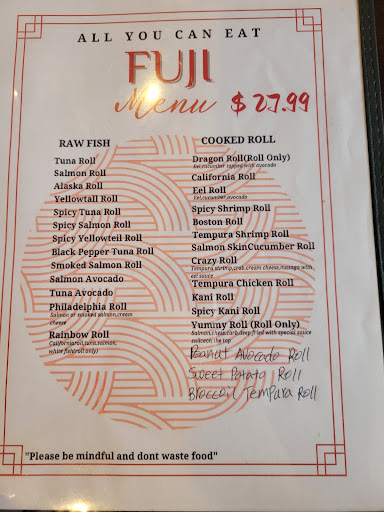 ALL YOU CAN EAT
FUJI
Menu $27.99
RAW FISH
Tuna Roll
Salmon Roll
Alaska Roll
Yellowtall Roll
Spicy Tuna Roll
Spicy Salmon Roll
Spicy Yellowteil Roll
Black Pepper Tuna Roll
Smoked Salmon Roll
Salmon Avocado
Tuna Avocado
Philadelphia Roll
Salmon or smoked salmon,cream
cheese
Rainbow Roll
Californiaroll,tuna,salmon,
white fish(roll only)
COOKED ROLL
Dragon Roll(Roll Only)
Eel,cucumber topped with avocado
California Roll
Eel Roll
Eel,cucumber,avocado
Spicy Shrimp Roll
Boston Roll
Tempura Shrimp Roll
Salmon SkinCucumber Roll
Crazy Roll
Tempura shrimp,crab,cream cheese,masago with
eel sauce
Tempura Chicken Roll
Kani Roll
Spicy Kani Roll
Yummy Roll (Roll Only)
Salmon,chees,carb,deep fried with special sauce
on the top
Peanut Avocado Roll
Sweet Potato Roll
Broccoil Tempura Roll
"Please be mindful and dont waste food"